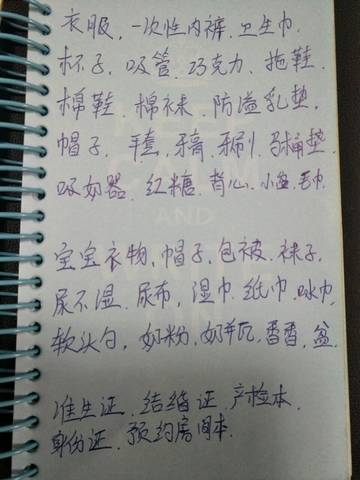 衣服、一次性内裤、卫生巾、
杯子、吸管、巧克力、拖鞋、
棉鞋、棉袜、防溢乳垫、
帽子、手套、牙膏、牙刷、马桶垫、
吸奶器、红糖、背心、小盆、毛巾
宝宝衣物、帽子、包被、袜子、
尿不湿、尿布、湿巾、纸巾、口水巾、
软头勺、奶粉、奶瓶、香香、盆、
准生证、结婚证、产检本、
身份证、预约房间本、
AND